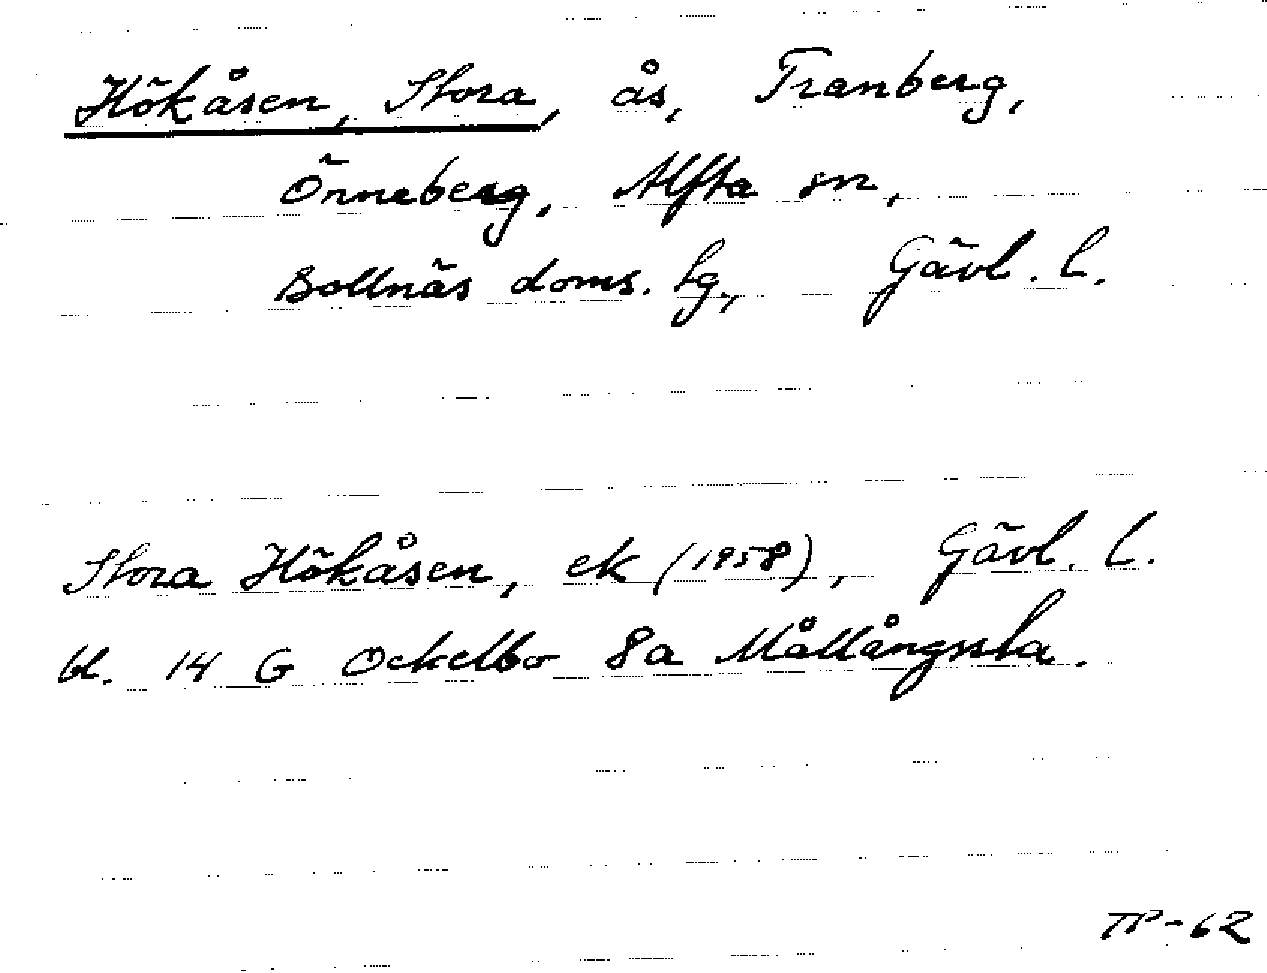 Hökåsen, Stora, ås, Tranberg,
Önneberg, Alfta sn,
Bollnäs doms. lg, Gävl. l.
Stora Hökåsen, ek (1958), Gävl. l.
bl. 14 G Ockelbo 8a Mållångssta.
TP-62